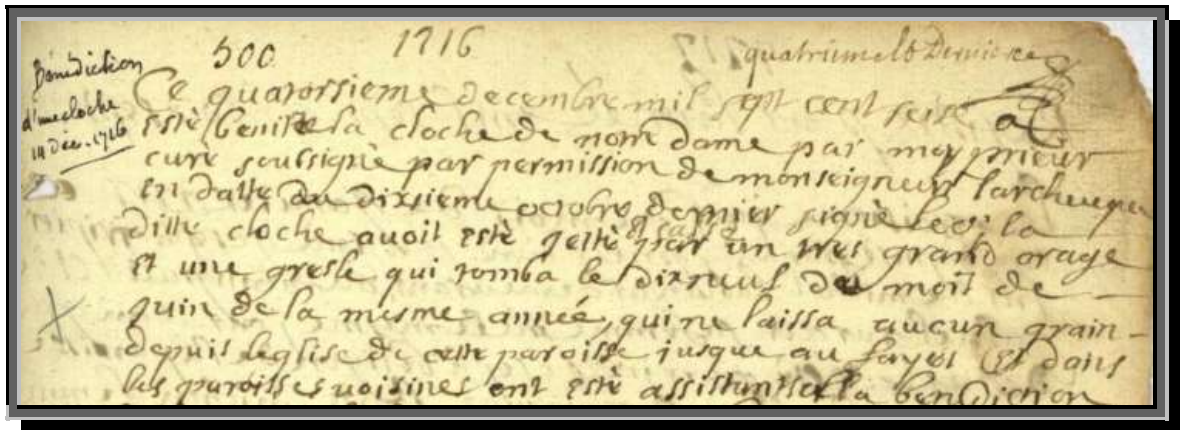 Bénédiction
d'une cloche
14 Déc. 1716
500 1716 quatrieme et Derniere
Ce quatorsieme decembre mil sept cent seise a
esté benitte la cloche de notre dame par moy prieur
curé soussigné par permission de monseigneur larcheveque
en datte du dixsieme octobre dernier signé la
ditte cloche avoit esté gettée par un tres grand orage
et une gresle qui tomba le dixneuf du moit de
juin de la mesme année, qui ne laissa aucun grain
depuis leglise de cette paroisse jusque au fayet et dans
les paroisses voisines ont esté assistants a la benediction